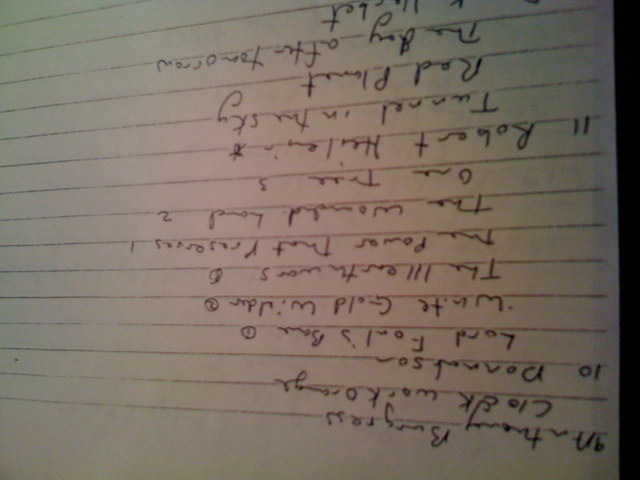 9 Antnony Burgress
Clock work orange
10 Donnalson
Lord Foul's Bane
White Gold Wilder
The Illearth wars
The Power That Preserves 1
The Wounded Land 2
One Tree 3
11 Robert Heilein *
Tunnel in the sky
Red Planet
The Day after tomorrow